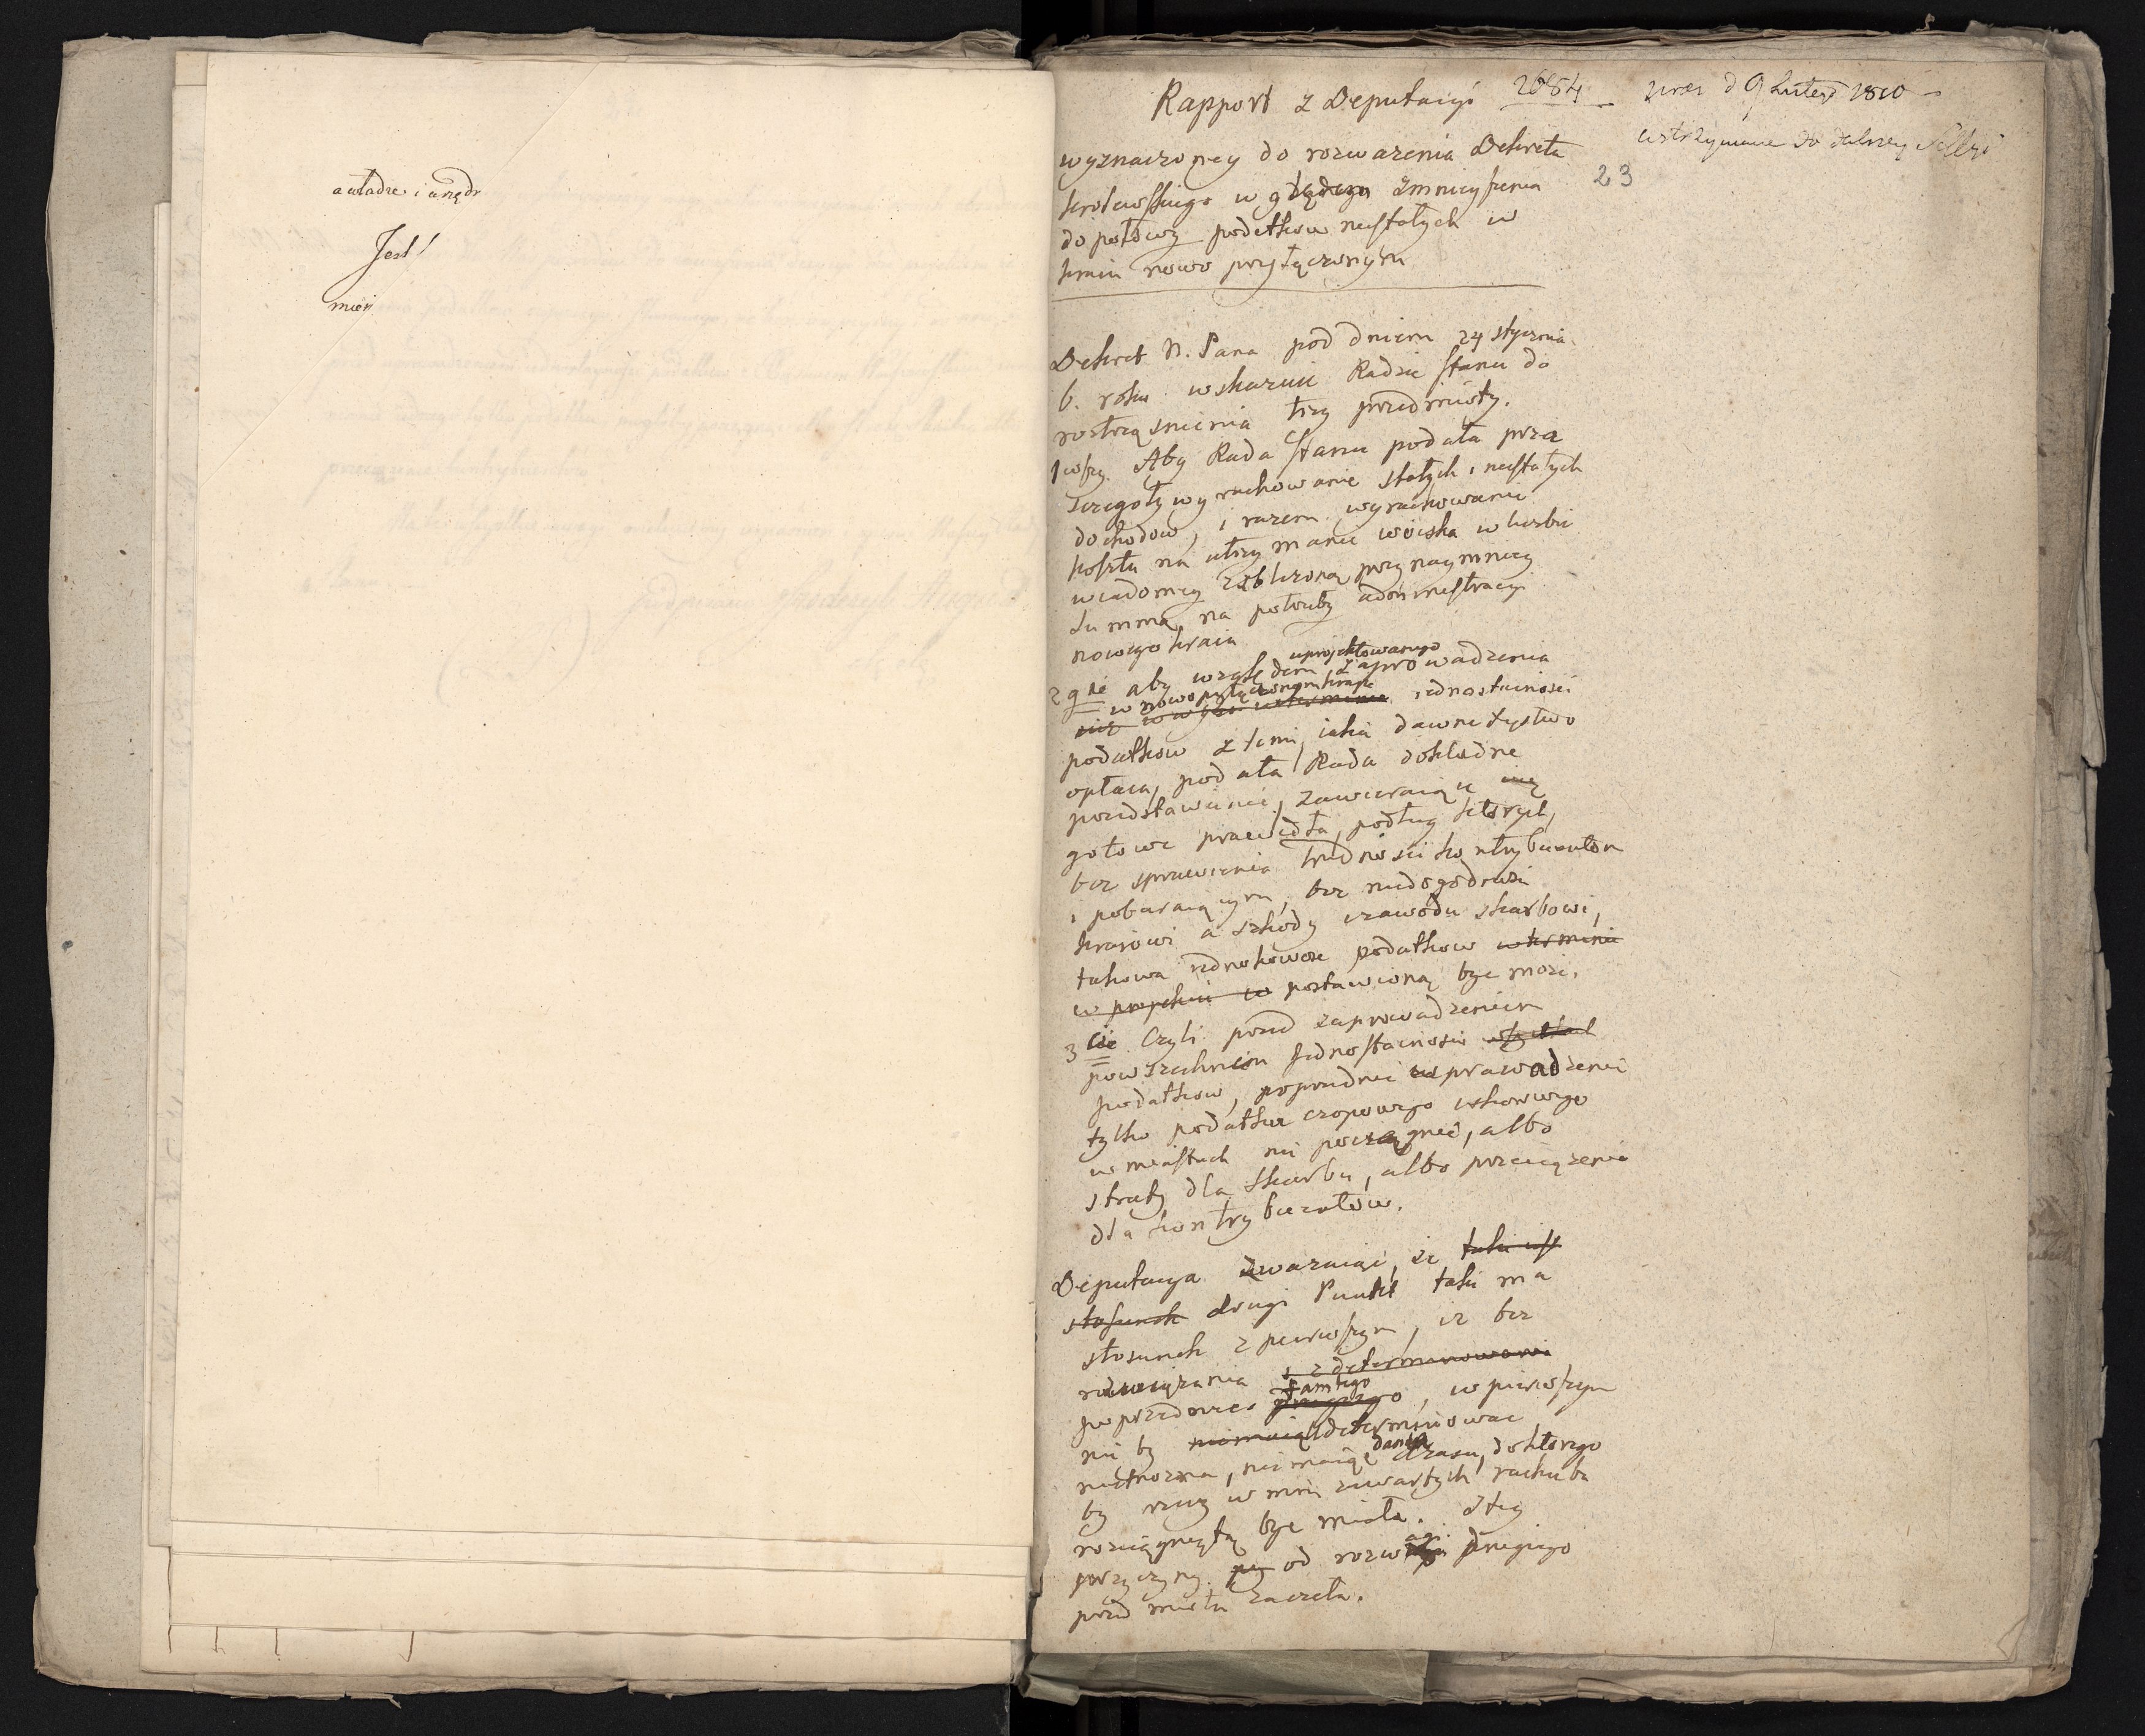 a władze i urzędr
Jest!
mieś
Rapport z Deputacyi 2664 prez d 9 Lutego 1810
wstrzymane do dalszey Sessyi
23
wyznaczoney do rozwarzenia Dekretu
krolewskiego względem zmnieyszenia
do połowy podatkow niestałych w
kraiu nowo przyłączonym
Dekret N. Pana pod dniem 24 stycznia
b. roku wskazuie Radzie stanu do
rostrząsnienia trzy przedmioty.
1wszy. Aby Rada stanu podała przez
szczegoły wyrachowanie stałych i niestałych
dochodow, i razem wyrachowanie
kosztu na utrzymanie woiska w liczbie
wiadomey zbliżoną przynaymniey
summą, na potrzeby administracyi
nowego kraiu
2gie aby względem uproiektowanego zaprowadzenia
w nowo przyłączonym kraiu iednostainości
podatkow z temi, iakie dawne Xięstwo
opłaca, podała Rada dokładne
przedstawienie, zawieraiące
gotowe prawidła, podług ktorych,
bez sprawienia trudności kontrybuentom
i pobieraiącym, bez niedogodności
kraiowi a szkody i zawodu skarbowi,
takowa iednakowość podatkow
postawioną być może.
3cie Czyli przed zaprowadzeniem
powszechnem iednostainości
podatkow, poprzednie wprowadzenie
tylko podatku czopowego
w miastach nie pociągnie, albo
straty dla skarbu, albo przeciążenia
dla kontrybuentow.
Deputacya zważaiąc, że
drugi Punkt taki ma
stosunek z pierwszym, iż bez
rozwiązania
poprzednieo tamtego, w pierwszym
nic by determinować
niemożna, niemaiąc danego czasu, do ktorego
by rzeczy w nim zawartych rachuba
rozciągniętą być miała. Z tey
przyczyny od rozwagi drugiego
przedmiotu zaczeła.